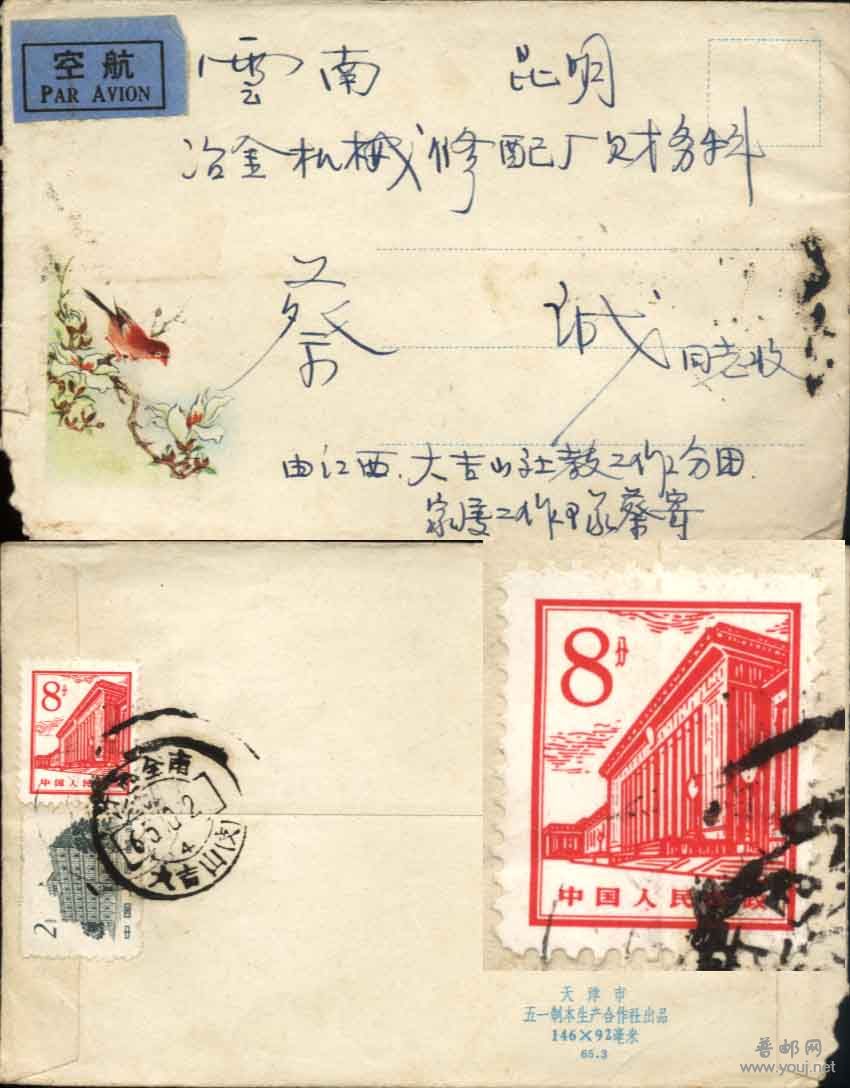 空航
PAR AVION
雲南 昆明
冶金机械修配厂财务科
蔡 诚 同志收
由江西.大吉山社教工作分团.
蔡寄
8分
中国人民
江西全南
大吉山(支)
2
中国
8分
中国人民邮政
天津市
五一制本生产合作社出品
146×92毫米
65.3
普邮网
www.youj.net